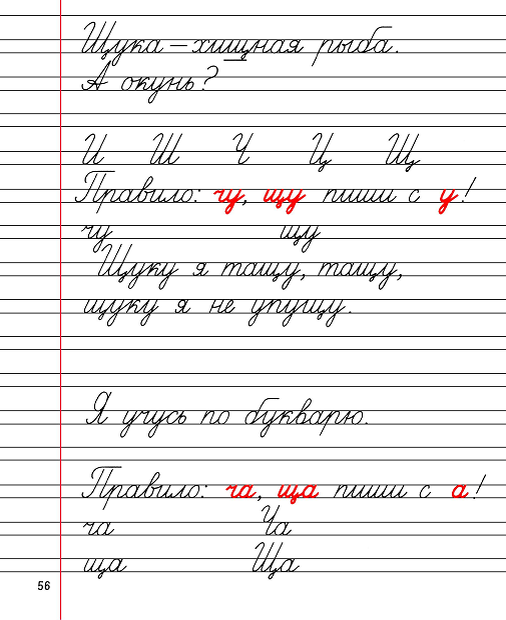 Щука – хищная рыба.
А окунь?
И Ш Ч Ц Щ
Правило: чу, щу пиши с у!
чу щу
Щуку я тащу, тащу,
щуку я не упущу.
Я учусь по букварю.
Правило: ча, ща пиши с а!
ча Ча
ща Ща
56